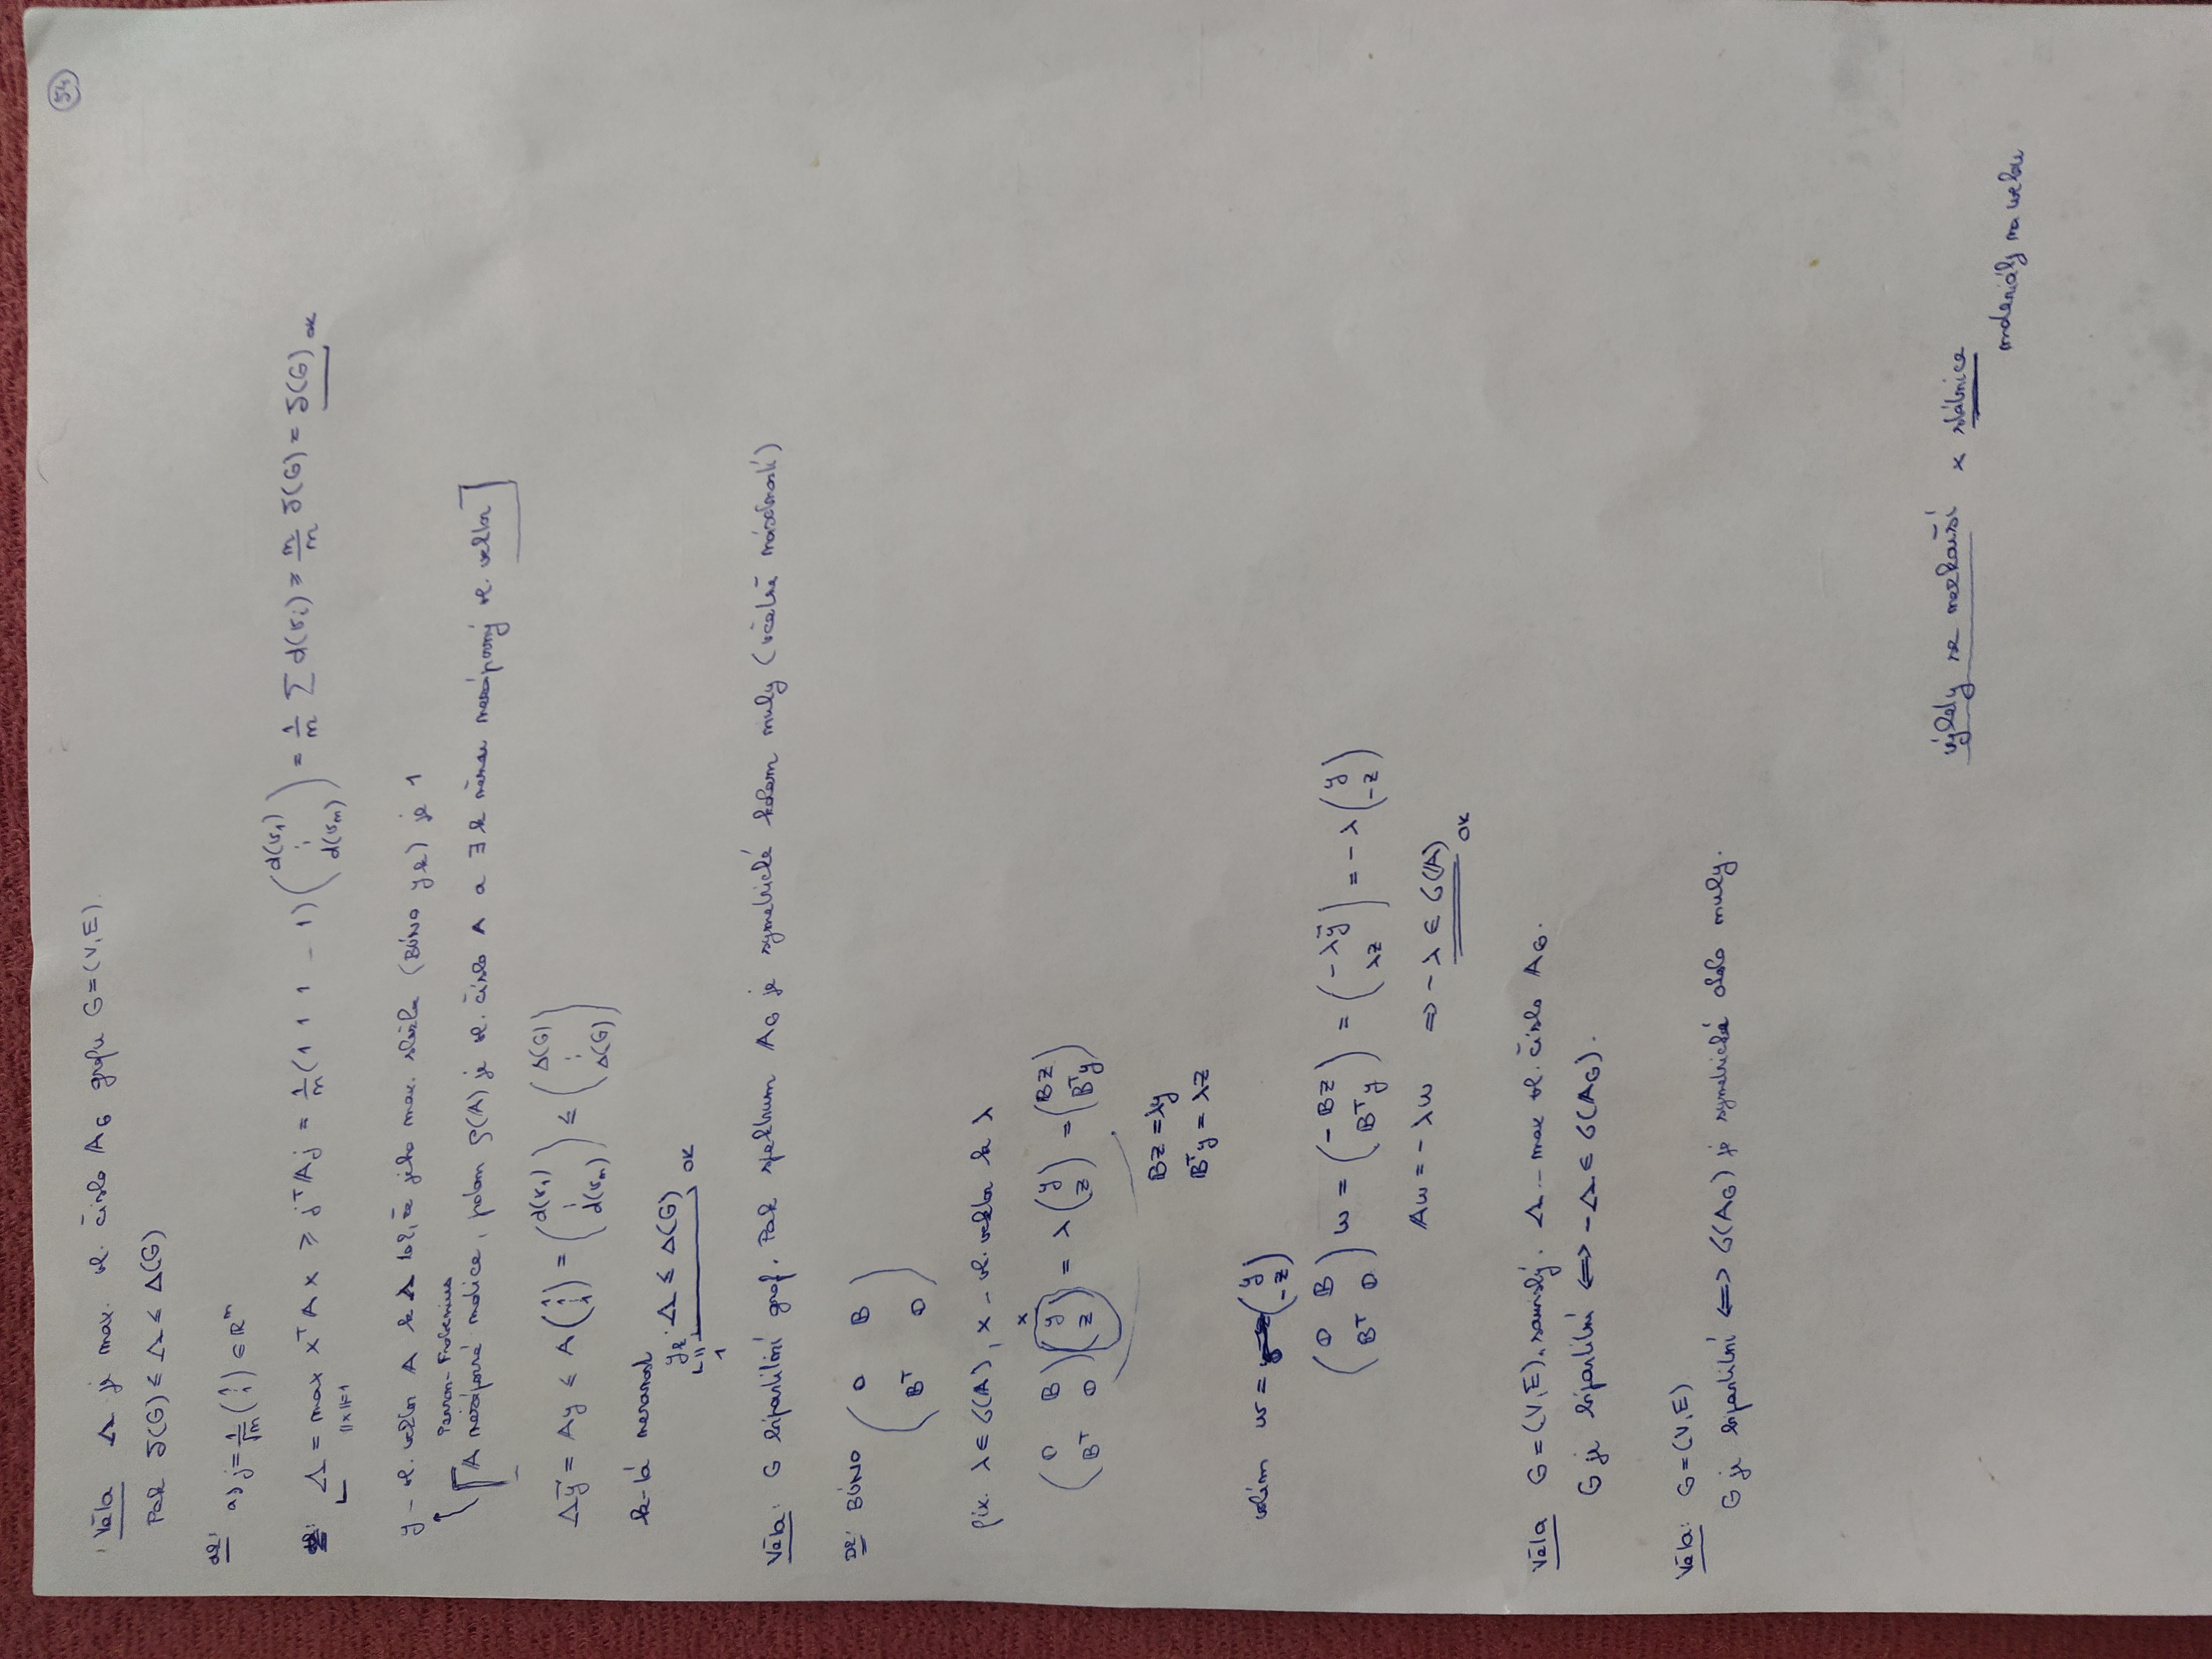 54
Věta Λ je max. vl. číslo A_G grafu G=(V,E).
Pak δ(G) ≤ Λ ≤ Δ(G)
dk: a) j = 1/√n (1 ⋮ 1) ∈ R^n
Λ = max_{||x||=1} x^T A x ≥ j^T A j = 1/n (1 1 1 - 1) (d(v_1) ⋮ d(v_n)) = 1/n Σ d(v_i) ≥ n/n δ(G) = δ(G) OK
y - vl. vektor A k Λ tož, že jeho max. složka (BÚNO y_k) je 1
Perron-Frobenius
[A nezáporná matice, potom ρ(A) je vl. číslo A a ∃ k němu nezáporný vl. vektor]
Λy = Ay ≤ A (1 ⋮ 1) = (d(v_1) ⋮ d(v_n)) ≤ (Δ(G) ⋮ Δ(G))
k-tá nerovnost
y_k Λ ≤ Δ(G) OK
= 1
Věta: G bipartitní graf. Pak spektrum A_G je symetrické kolem nuly (včetně násobností)
Dk: BÚNO (0 B B^T 0)
fix. λ ∈ σ(A), x - vl. vektor k λ
(0 B B^T 0) (y z) = λ (y z) = (Bz B^T y)
x
Bz = λy
B^T y = λz
volím w = (y -z)
(0 B B^T 0) w = (-Bz B^T y) = (-λy λz) = -λ (y -z)
Aw = -λw ⇒ -λ ∈ σ(A) OK
Věta G=(V,E), souvislý. Λ - max vl. číslo A_G.
G je bipartitní ⟺ -Λ ∈ σ(A_G).
Věta: G=(V,E)
G je bipartitní ⟺ σ(A_G) je symetrické okolo nuly.
výklady se nezkouší × státnice
materiály na webu